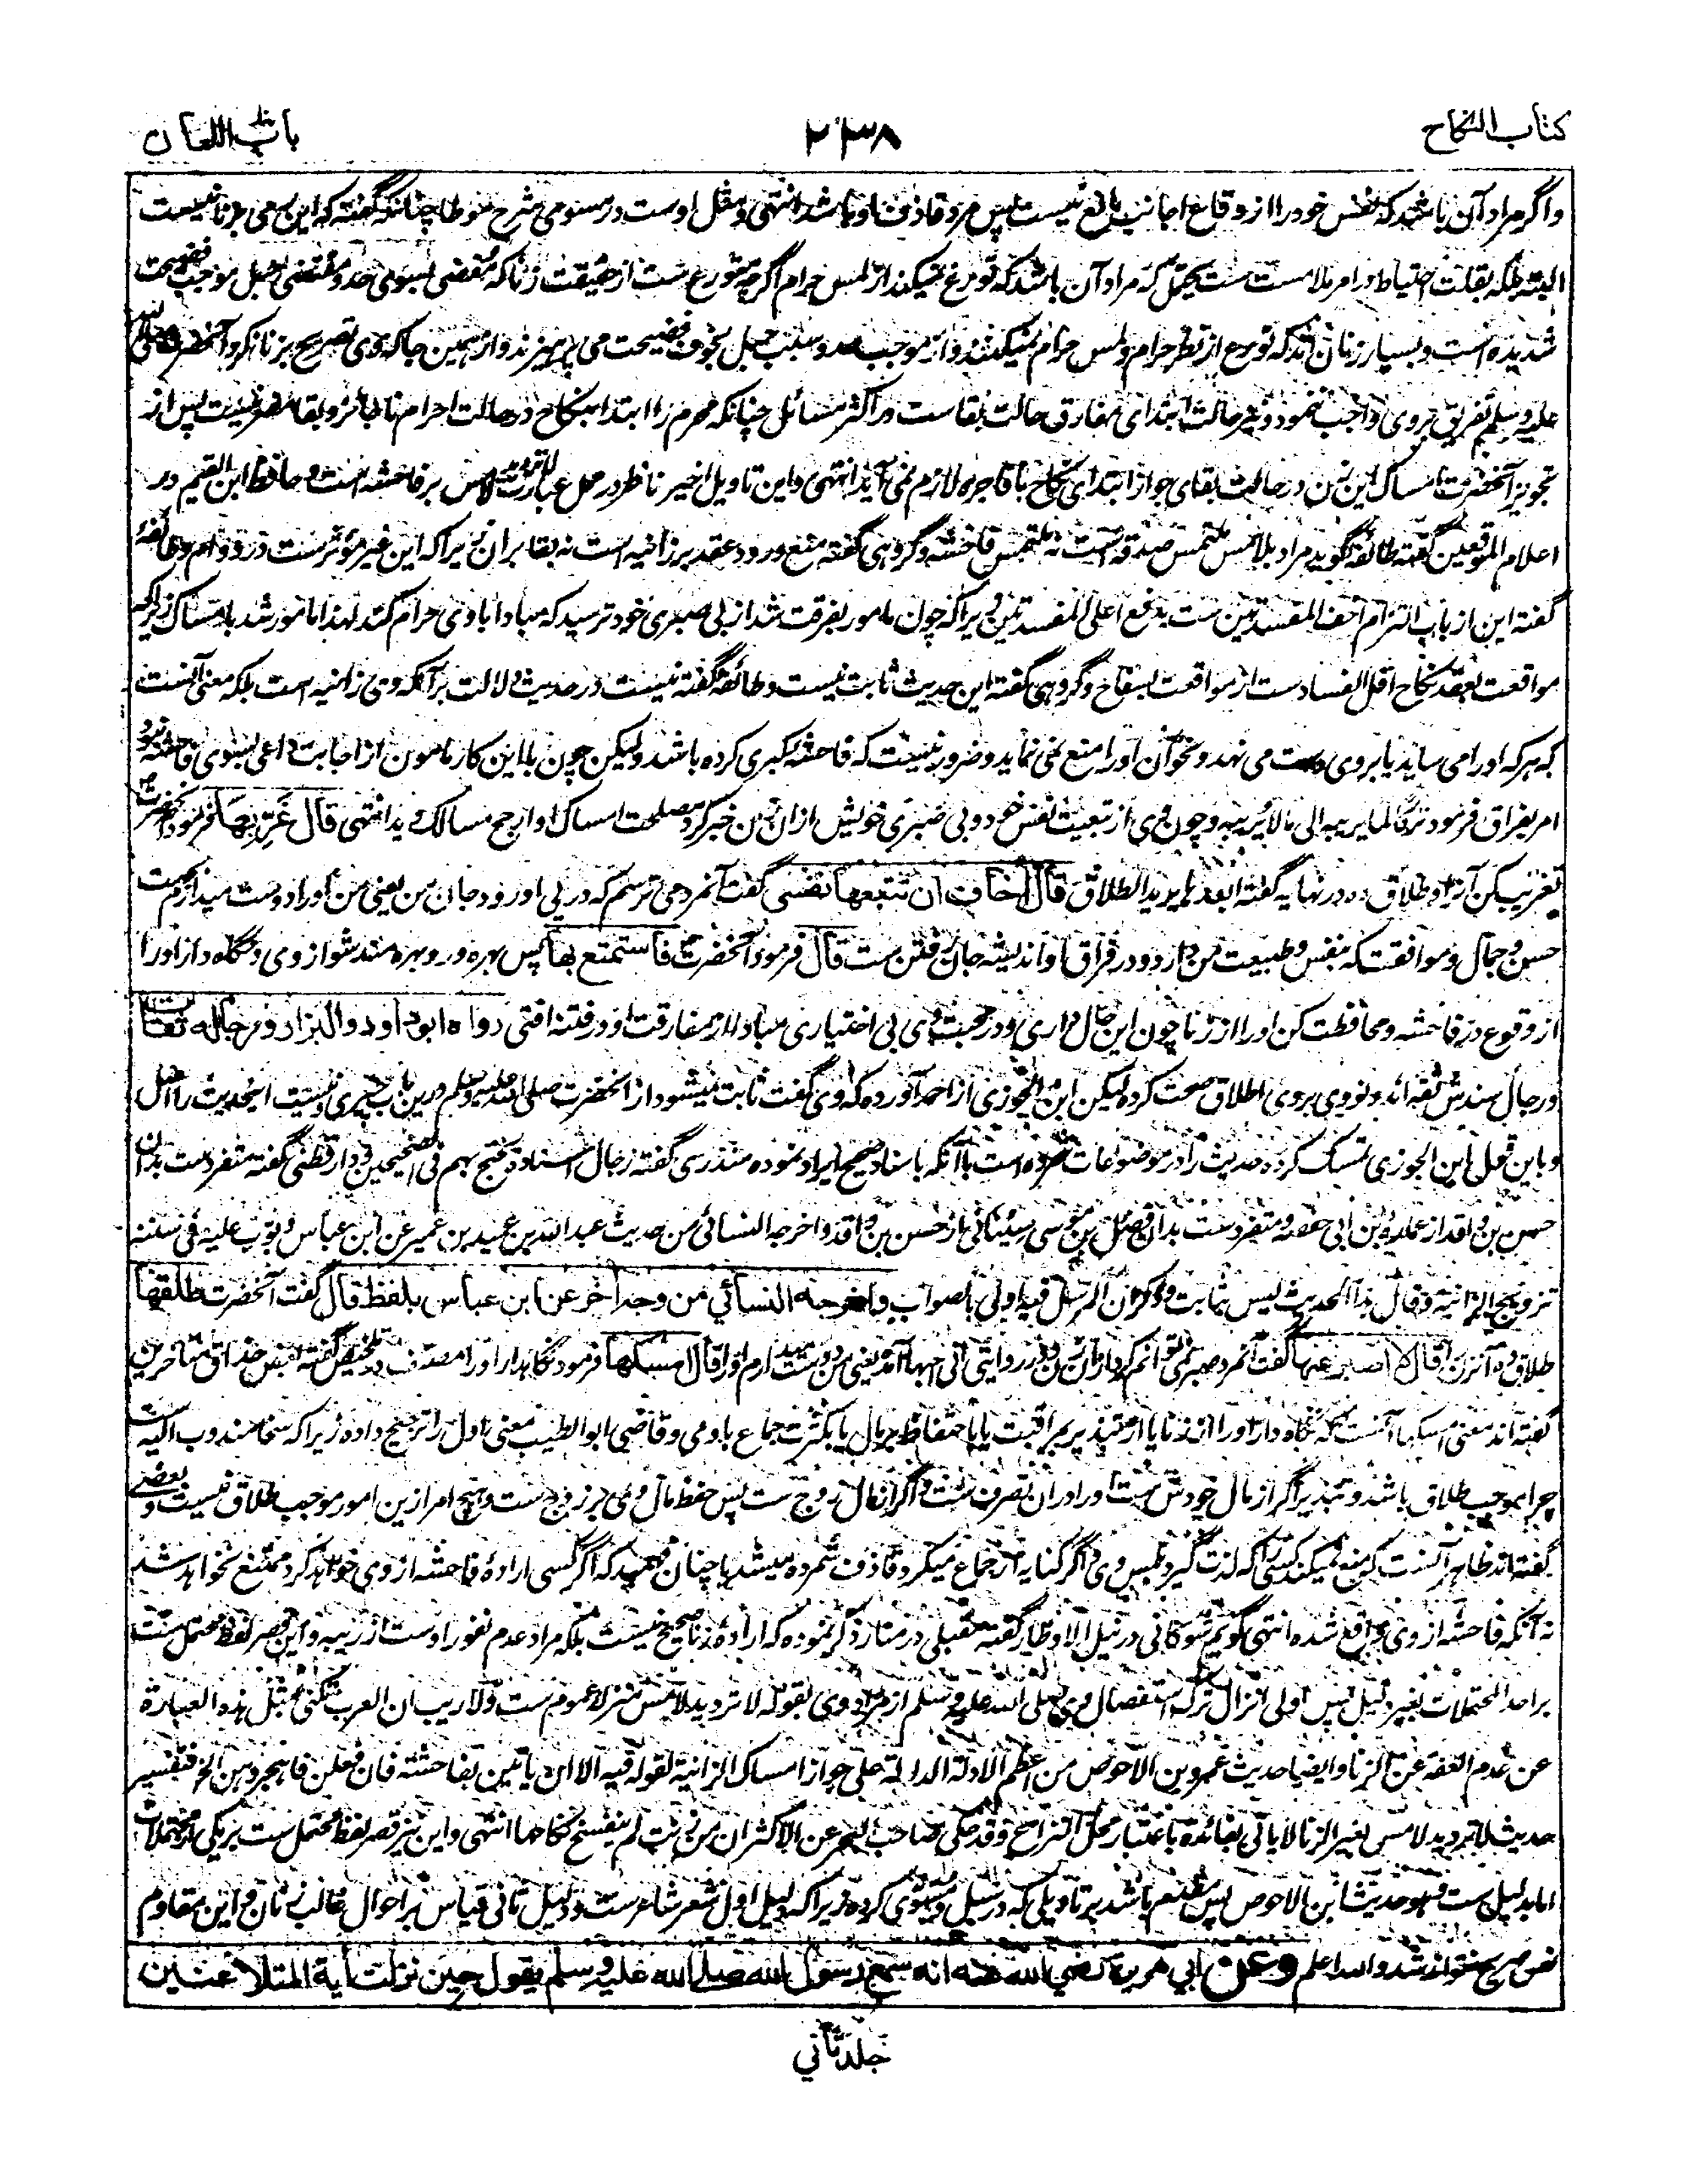 كتاب النكاح
۲۳۸
باب اللعان
واگر مراد آن باشد که نفس خود را از وقاع اجانب مانع نیست پس مرد قاذف او باشد انتهی و مثل اوست در مسوی شرح موطا چنانکه گفته که این رمی بزنا نیست
البته بلکه بقلت احتیاط در امر ملامست ست یحتمل که مراد آن باشد که تورع نمیکند از لمس حرام اگرچه متورع ست از حقیقت زنا که مفضی بسوی حد و مقتضی حبل موجب فضیحت
شدیده است و بسیار زنان اند که تورع از نظر حرام و لمس حرام نمیکنند و از موجب حد و سبب حبل بخوف فضیحت می پرهیزند و از همین جا که وی تصریح بزنا نکرد آنحضرت صلی الله
علیه وسلم تفریق بروی واجب ننمود و نیز حالت ابتدای مفارق حالت بقاست در اکثر مسائل چنانکه محرم را ابتدا بنکاح در حالت احرام ناجائز و بقا مضر نیست پس از
تجویز آنحضرت امساک این زن در حالت بقای جواز ابتدای نکاح با فاجره لازم نمی آید انتهی و این تاویل اخیر ناظر در حمل عبارت لا ترد ید لامس بر فاحشه است و حافظ ابن القیم در
اعلام الموقعین گفته طائفه گوید مراد بلامس ملتمس صدقه است نه ملتمس فاحشه و گروهی گفته منع ورود عقد بر زانیه است نه بقا بر آن زیرا که این غیر مؤثرست در دوام و طائفه
گفته این از باب التزام اخف المفسدتین ست بدفع اعلی المفسدتین زیرا که چون مامور بفرقت شد از بی صبری خود ترسید که مبادا با وی حرام کند لهذا مامور شد بامساک زیرا که
مواقعت بعقد نکاح اقل الفسادست از مواقعت بسفاح و گروهی گفته این حدیث ثابت نیست و طائفه گفته نیست در حدیث دلالت بر آنکه وی زانیه است بلکه معنی آنست
که هر که او را می ساید یا بروی دست می نهد و نحو آن او را منع نمی نماید و ضرور نیست که فاحشه کبری کرده باشد ولیکن چون با این کار مامون از اجابت داعی بسوی فاحشه نبود
امر بفراق فرمود ترکا لما یریبه الی ما لا یریبه و چون وی از تبعیت نفس خود و بی صبری خویش ازان زن خبر کرد مصلحت امساک او ارجح مسالک دید انتهی قال غربها فرمود آنحضرت
تغریب کن آنرا و طلاق ده در نهایه گفته ابعدها یرید الطلاق قال اخاف ان تتبعها نفسی گفت آنمرد می ترسم که در پی او رود جان من یعنی من او را دوست میدارم بجهت
حسن و جمال و موافقت که بنفس و طبیعت من دارد و در فراق او اندیشه جان رفتن ست قال فرمود آنحضرت فاستمتع بها پس بهره ور و بهره مند شو از وی و نگاه دار او را
از وقوع در فاحشه و محافظت کن او را از زنا چون این حال داری و در محبت وی بی اختیاری مبادا از مفارقت او در فتنه افتی رواه ابو داود والبزار ورجاله ثقات
و رجال سندش ثقه اند و نووی بروی اطلاق صحت کرده لیکن ابن الجوزی از احمد آورده که وی گفت ثابت نمیشود از آنحضرت صلی الله علیه وسلم درین باب چیزی و نیست اینحدیث را اصل
و باین قول ابن الجوزی تمسک کرده حدیث را در موضوعات شمرده است با آنکه باسناد صحیح ایراد نموده منذری گفته رجال اسناده محتج بهم فی الصحیحین و دارقطنی گفته متفردست بدان
حسن بن واقد از عماره بن ابی حفصه و متفردست بدان فضل بن موسی سینانی از حسن بن واقد و اخرجه النسائی من حدیث عبدالله بن عبید بن عمیر عن ابن عباس و بوب علیه فی سننه
تزویج الزانیة و قال هذا الحدیث لیس بثابت و ذکر ان المرسل فیه اولی بالصواب واخرجه النسائي من وجه آخر عن ابن عباس بلفظ قال گفت آنحضرت طلقها
طلاق ده آنزن را قال لا اصبر عنها گفت آنمرد صبر نمی توانم کرد ازان زن و در روایتی انی احبها آمده یعنی من دوست میدارم او را قال امسکها فرمود نگاهدار او را مصنف در تلخیص گفته بعض حذاق متاخرین
گفته اند معنی امسکها آنست که نگاه دار او را از زنا یا از تبذیر بمراقبت یا باحتفاظ بر مال یا بکثرت جماع با وی و قاضی ابو الطیب معنی اول را ترجیح داده زیرا که سخا مندوب الیه ست
چرا موجب طلاق باشد و تبذیر اگر از مال خودش ست او را دران تصرف ست و اگر از مال زوج ست پس حفظ مال وی بر زوج ست و هیچ امر ازین امور موجب طلاق نیست و بعضی
گفته اند ظاهر آنست که منع نمیکند کسی را که لذت گیرد بلمس وی و اگر کنایه از جماع میکرد قاذف شمرده میشد یا چنان فهمید که اگر کسی اراده فاحشه از وی خواهد کرد ممتنع نخواهد شد
نه آنکه فاحشه از وی واقع شده انتهی گویم شوکانی در نیل الاوطار گفته مقبلی در منار ذکر نموده که اراده زنا صحیح نیست بلکه مراد عدم نفور اوست از ریبه و این قصر لفظ محتمل ست
بر احد المحتملات بغیر دلیل پس اولی انزال ترک استفصال وی صلی الله علیه وسلم از مراد وی بقوله لا ترد ید لامس منزله عموم ست و لا ریب ان العرب تکنی بمثل هذه العبارة
عن عدم العفة عن الزنا و ایضا حدیث عمرو بن الاحوص من اعظم الادلة الدالة علی جواز امساک الزانیة لقوله فیه الا ان یاتین بفاحشة فان فعلن فاهجروهن الخ فتفسیر
حدیث لا ترد ید لامس بغیر الزنا لا یاتی بفائدة باعتبار محل النزاع و قد حکی صاحب البحر عن الاکثر ان من زنت لم ینفسخ نکاحها انتهی و این نیز قصر لفظ محتمل ست بر یکی از محتملات
اما بدلیل ست و هو حدیث ابن الاحوص پس مقدم باشد بر تاویلی که در سبل و مسوی کرده زیرا که دلیل اول شعر شاعرست و دلیل ثانی قیاس بر احوال غالب زنان و این مقاوم
نص صریح نتواند شد والله اعلم وعن ابي هريرة رضي الله عنه انه سمع رسول الله صلى الله عليه وسلم يقول حين نزلت آية المتلاعنين
جلد ثاني